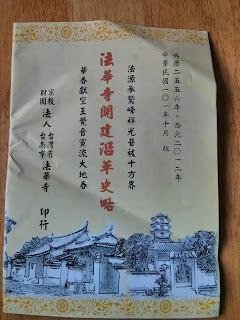 佛曆二五五六年・西元二〇一二年
中華民國一〇一年十月 版
法源承鷲峰祥光普被十方界
法華寺開建沿革史略
華香獻空王聲音震流大地春
宗教 財團 法人 台灣省 台南市 法華寺 印行